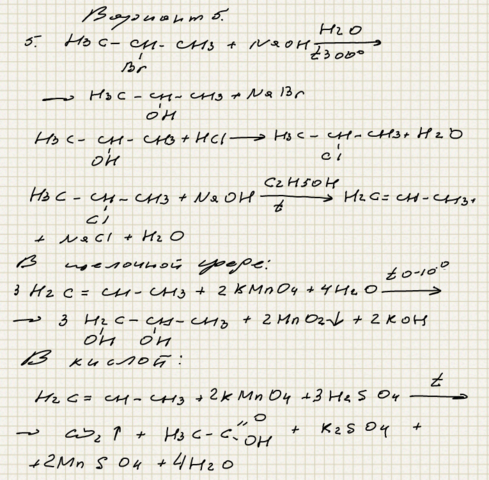 Вариант 5.
5. H3C – CH – CH3 + NaOH H2O t300° →
Br
→ H3C – CH – CH3 + NaBr
OH
H3C – CH – CH3 + HCl → H3C – CH – CH3 + H2O
OH Cl
H3C – CH – CH3 + NaOH C2H5OH t → H2C = CH – CH3 +
Cl
+ NaCl + H2O
В щелочной среде:
3 H2C = CH – CH3 + 2KMnO4 + 4H2O t 0-10° →
→ 3 H2C – CH – CH3 + 2MnO2↓ + 2KOH
OH OH
В кислой:
H2C = CH – CH3 + 2KMnO4 + 3H2SO4 t →
→ CO2 ↑ + H3C – C O OH + K2SO4 +
+ 2MnSO4 + 4H2O